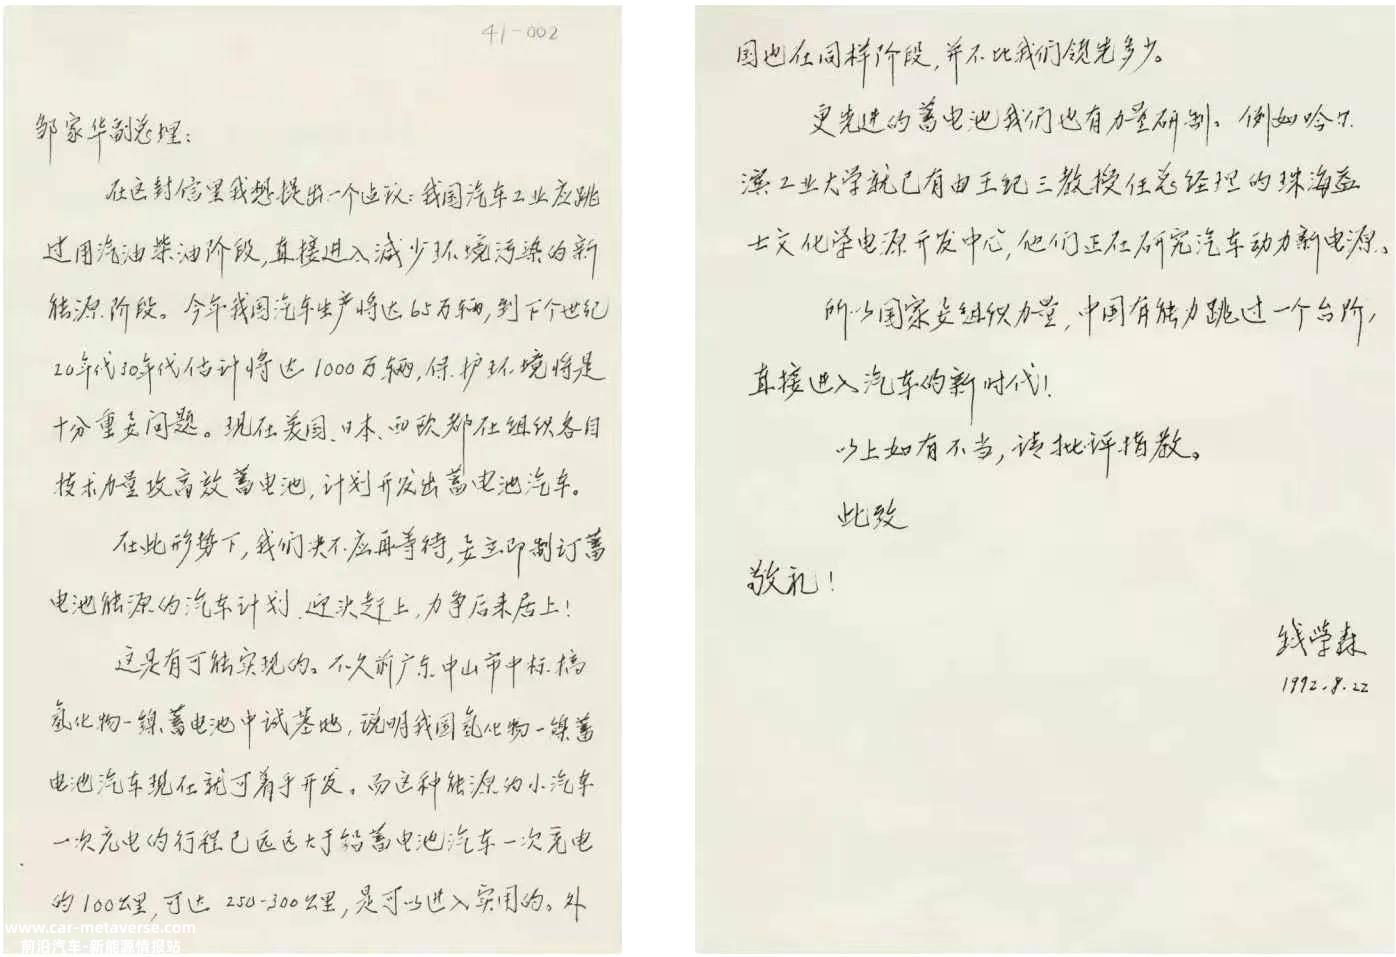 41-002
邹家华副总理：
在这封信里我想提出一个建议：我国汽车工业应跳
过用汽油柴油阶段，直接进入减少环境污染的新
能源阶段。今年我国汽车生产将达65万辆，到下个世纪
20年代30年代估计将达1000万辆，保护环境将是
十分重要问题。现在美国、日本、西欧都在组织各自
技术力量攻高效蓄电池，计划开发出蓄电池汽车。
在此形势下，我们决不应再等待，要立即制订蓄
电池能源的汽车计划，迎决赶上，力争后来居上！
这是有可能实现的。不久前广东中山市中标搞
氢化物-镍蓄电池中试基地，说明我国氢化物-镍蓄
电池汽车现在就可着手开发。而这种能源的小汽车
一次充电的行程已远远大于铅蓄电池汽车一次充电
的100公里，可达250-300公里，是可以进入实用的。外
www.car-metaverse.com
前沿汽车-新能源情报站
国也在同样阶段，并不比我们领先多少。
更先进的蓄电池我们也有力量研制。例如哈尔
滨工业大学就已有由王纪三教授任总经理的珠海益
士文化学电源开发中心，他们正在研究汽车动力新电源。
所以国家要组织力量，中国有能力跳过一个台阶，
直接进入汽车的新时代！
以上如有不当，请批评指教。
此致
敬礼！
钱学森
1992.8.22